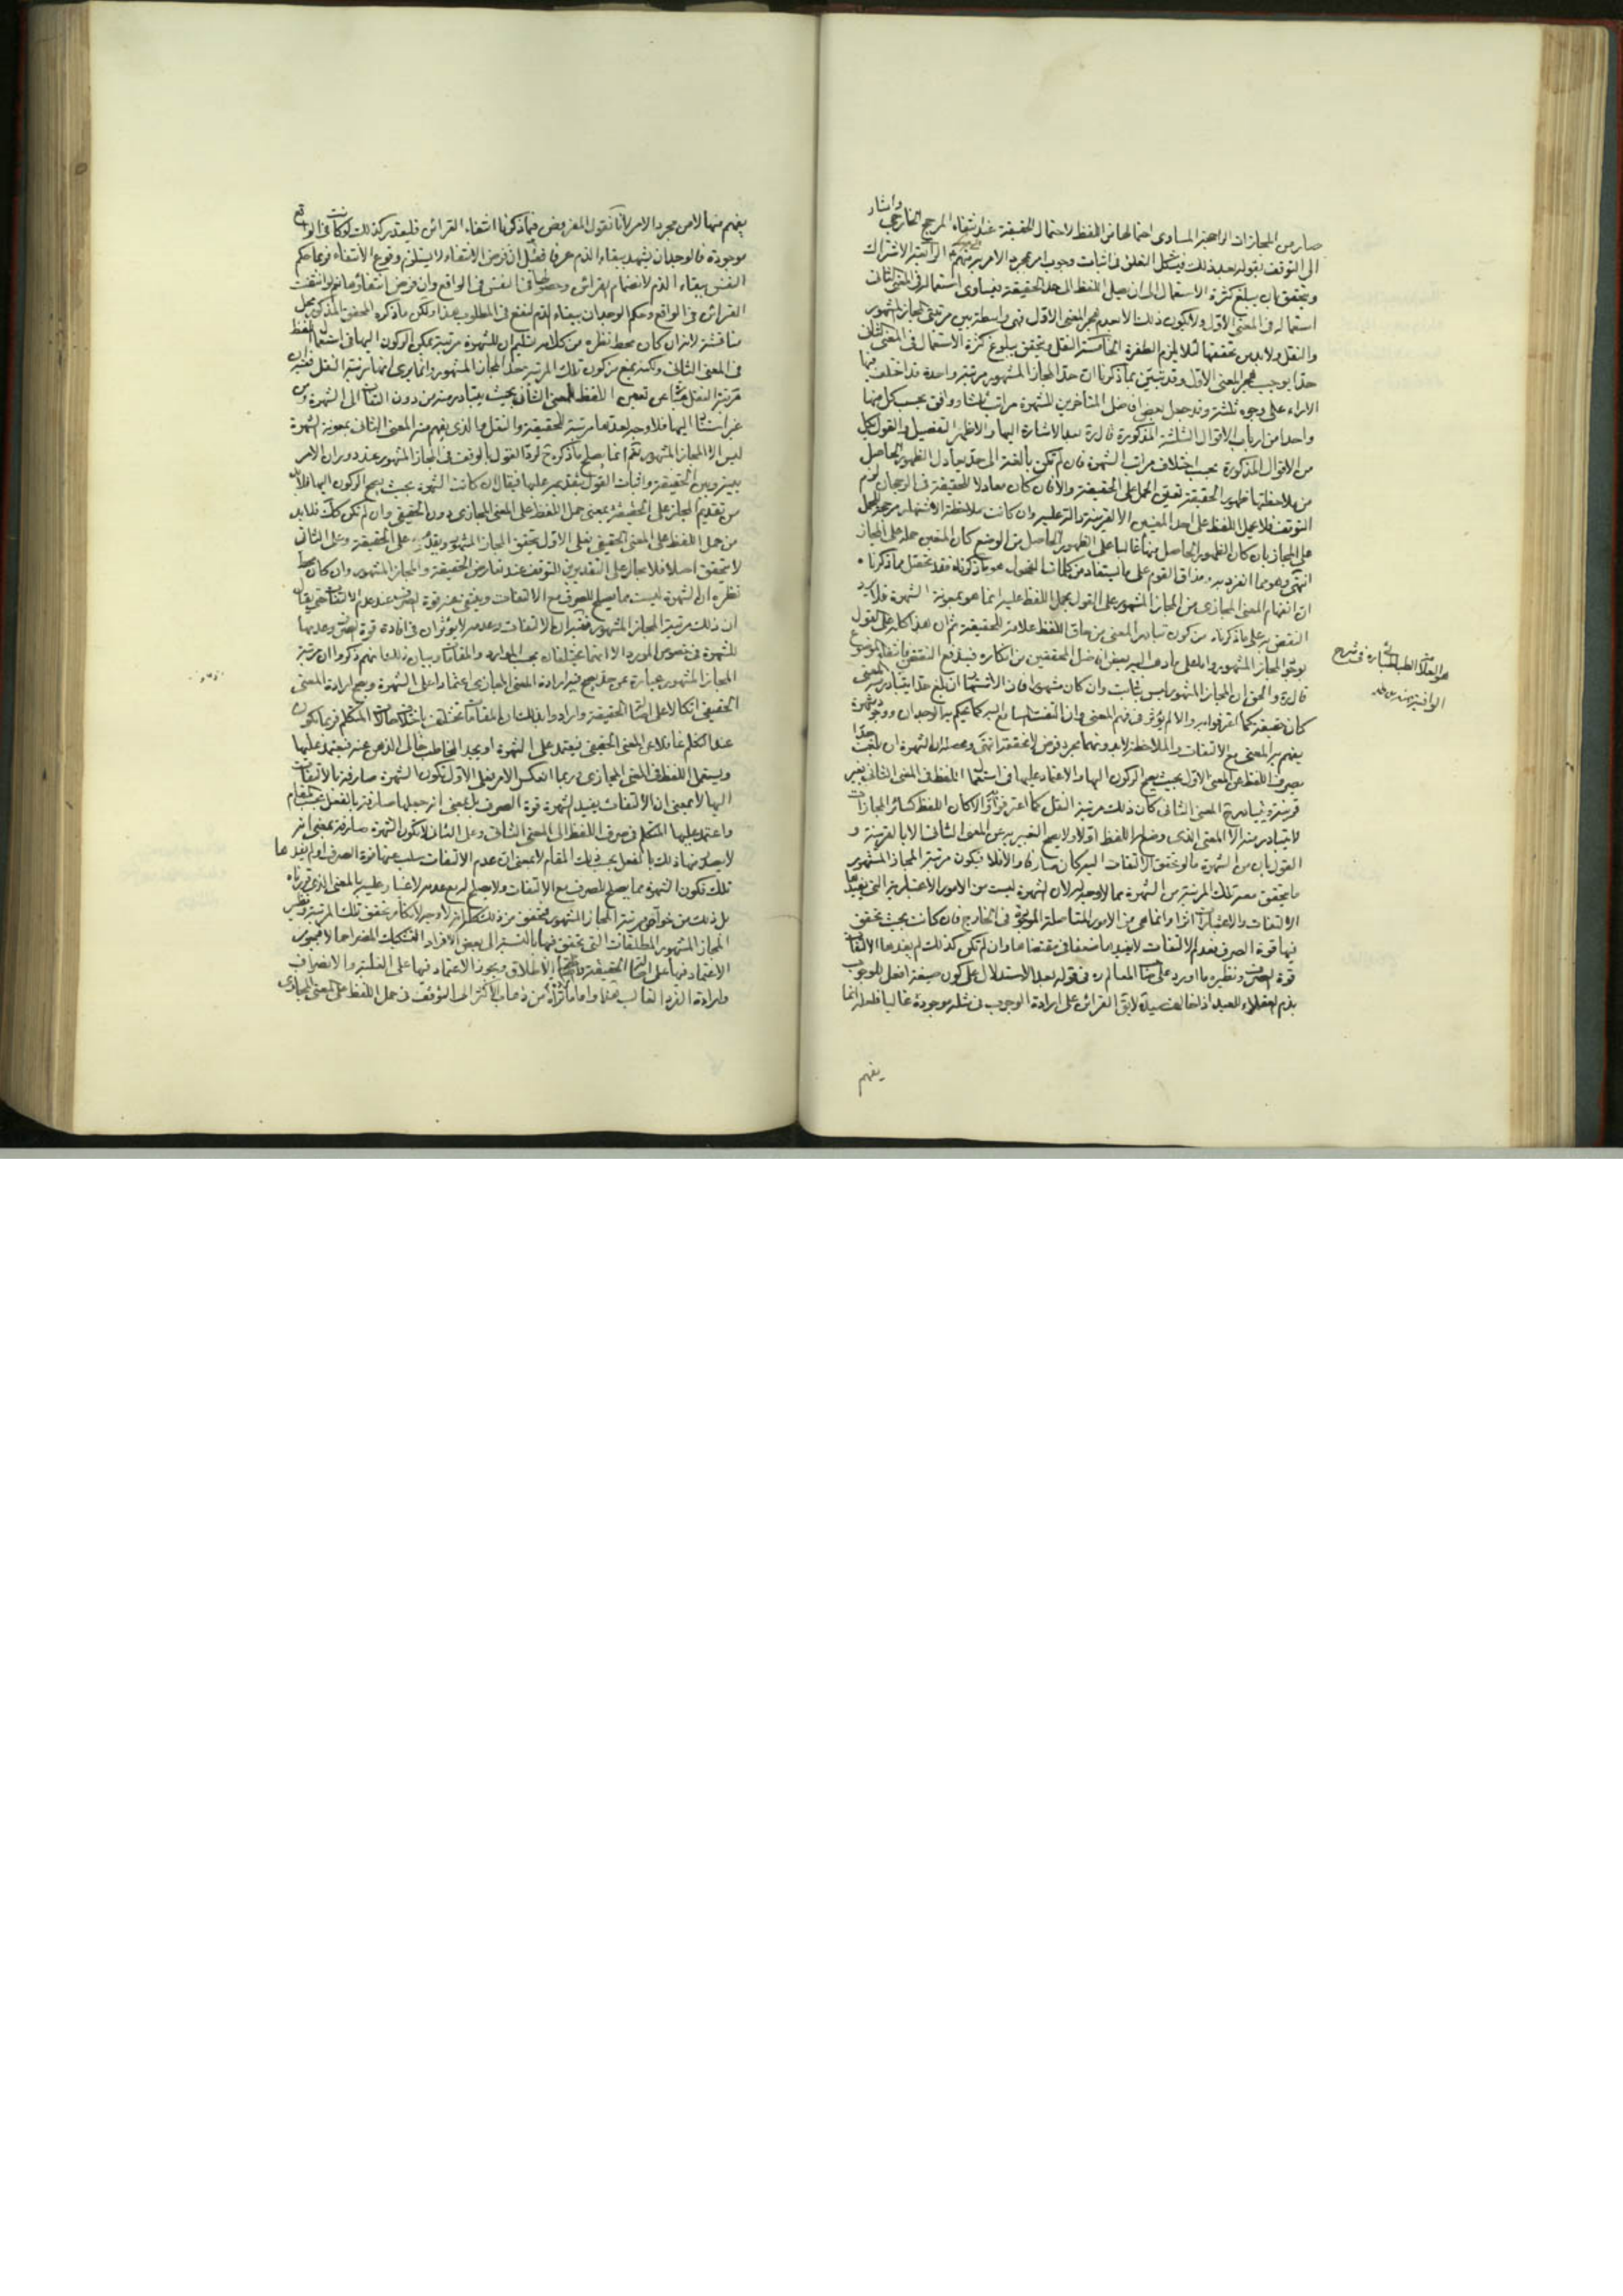 صار من المجازات الراجحة المساوى احتمالها من اللفظ لاحتمال الحقيقة عند انتفاء المرجح الخارجى واشار
الى التوقف بقوله بعد ذلك فيشكل التعلق فى اثبات وجوب امر بمجرد الامر به منهم الرابعة الاشتراك
ويتحقق بان يبلغ كثرة الاستعمال الى ان يصل اللفظ الى حد الحقيقة بتساوى استعماله فى المعنى الثانى
استعماله فى المعنى الاول ولا يكون ذلك الا بعدم هجر المعنى الاول فهى واسطة بين مرتبتى المجاز المشهور
والنقل ولابد من تحققها لئلا يلزم الطفرة الخامسة النقل ويتحقق ببلوغ كثرة الاستعمال فى المعنى الثانى
حدا يوجب هجر المعنى الاول وقد تبين بما ذكرنا ان حد المجاز المشهور مرتبة واحدة قد اختلف فيها
الاراء على وجوه ثلثة وقد جعل بعض افاضل المتاخرين للشهرة مراتب ثلثا ووافق بحسب كل منها
واحدا من ارباب الاقوال الثلثة المذكورة قال ره بعد الاشارة اليها والاظهر التفصيل والقول بكل
من الاقوال المذكورة بحسب اختلاف مراتب الشهرة فان لم تكن بالغة الى حد يعادل الظهور الحاصل
من ملاحظتها ظهور الحقيقة تعين الحمل على الحقيقة والا فان كان معادلا للحقيقة فى الرجحان لزم
التوقف فلا يحمل اللفظ على احد المعنيين الا لقرينة دالة عليه وان كانت ملاحظة الاشتهار مرجحة للحمل
على المجاز بان كان الظهور الحاصل منها غالبا على الظهور الحاصل من الوضع كان المتعين حمله على المجاز
انتهى وهو مما انفرد به ومذاق القوم على ما يستفاد من كلماتهم هو ما ذكرناه فقد تحصل مما ذكرنا
ان انفهام المعنى المجازى من المجاز المشهور على القول بحمل اللفظ عليه انما هو بمعونة الشهرة فلا يرد
النقض به على ما ذكرناه من كون تبادر المعنى من حاق اللفظ علامة للحقيقة ثم ان هذا كله على القول
بوجود المجاز المشهور واما على ما ذهب اليه بعض افاضل المحققين من انكاره فيندفع النقض بانتفاء الموضوع
قال ره والحق ان المجاز المشهور ليس بثابت وان كان مشهورا فان الاشتهار ان بلغ حدا يتبادر منه المعنى
كان حقيقة كما اعترفوا به والا لم يؤثر فى فهم المعنى وان التفت السامع اليه كما يحكم به الوجدان ووجود شهرة
يفهم بها المعنى مع الالتفات والملاحظة لا بدونهما مجرد فرض لا تحقق له انتهى ومحصله ان الشهرة ان بلغت حدا
يصرف اللفظ عن المعنى الاول بحيث يصح الركون اليها والاعتماد عليها فى استعمال اللفظ فى المعنى الثانى بغير
قرينة ويتبادر منه المعنى الثانى كان ذلك مرتبة النقل كما اعترفوا به والا كان اللفظ كسائر المجازات
لا يتبادر منه الا المعنى الذى وضع له اللفظ اولا ولا يصح التعبير به عن المعنى الثانى الا بالقرينة و
القول بان من الشهرة ما لو تحقق الالتفات اليه كان صارفا والا فلا فيكون مرتبة المجاز المشهور
ما يتحقق معه تلك المرتبة من الشهرة مما لا وجه له لان الشهرة ليست من الامور الاعتبارية التى يفيدها
الالتفات والاعتبار اثرا وانما هى من الامور المتاصلة الموجودة فى الخارج فان كانت بحيث تحقق
فيها قوة الصرف فعدم الالتفات لا يفيدها ضعفا فى مقتضاها وان لم تكن كذلك لم يفدها الالتفات
قوة الصرف ونظيره ما اورد على صاحب المعالم ره فى قوله بعد الاستدلال على كون صيغة افعل للوجوب
بذم العقلاء للعبد اذا خالف سيده لا يق القرائن على ارادة الوجوب فى مثله موجودة غالبا فلعله انما
يفهم
هو العلامة الطباطبائى ره فى شرح
الوافية منه
يفهم منها لا من مجرد الامر لانا نقول المفروض فيما ذكرنا انتفاء القرائن فليقدر كذلك لو كانت فى الواقع
موجودة فالوجدان يشهد ببقاء الذم عرفا فقيل ان فرض الانتفاء لا يستلزم وقوع الانتفاء فربما حكم
النفس ببقاء الذم لانضمام القرائن وحضورها فى النفس فى الواقع وان فرض انتفاؤها نعم لو انتفت
القرائن فى الواقع وحكم الوجدان ببقاء الذم لنفع فى المطلوب هذا ولكن ما ذكره المحقق المذكور محل
مناقشة لانه ان كان محط نظره من كلامه تسليم ان للشهرة مرتبة يمكن الركون اليها فى استعمال اللفظ
فى المعنى الثانى ولكنه يمنع من كون تلك المرتبة حدا للمجاز المشهور وانما يرى انها مرتبة النقل ففيه ان
مرتبة النقل عبارة عن تعين اللفظ للمعنى الثانى بحيث يتبادر منه من دون التفات الى الشهرة ومن
غير استناد اليها فلا وجه لعد ما مرتبة للحقيقة والنقل ما الذى يفهم منه المعنى الثانى بمعونة الشهرة
ليس الا المجاز المشهور نعم انما يصلح ما ذكره ح لرد القول بالوقف فى المجاز المشهور عند دوران الامر
بينه وبين الحقيقة واثبات القول بتقديمه عليها فيقال ان كانت الشهرة بحيث يصح الركون اليها فلابد
من تقديم المجاز على الحقيقة بمعنى حمل اللفظ على المعنى المجازى دون الحقيقى وان لم تكن كذلك فلابد
من حمل اللفظ على المعنى الحقيقى فعلى الاول يتحقق المجاز المشهور ويقدم على الحقيقة وعلى الثانى
لا يتحقق اصلا فلا مجال على التقديرين للتوقف عند تعارض الحقيقة والمجاز المشهور وان كان محط
نظره ان الشهرة ليست مما يصلح للصرف مع الالتفات وينتفى عنه قوة الصرف عند عدم الالتفات حتى يقال
ان ذلك مرتبة المجاز المشهور ففيه ان الالتفات وعدمه لا يؤثران فى افادة قوة الصرف وعدمها
للشهرة فى خصوص المورد الا انهما يختلفان بحسب الموارد والمقامات وبيان ذلك انهم ذكروا ان مرتبة
المجاز المشهور عبارة عن حد يصح فيه ارادة المعنى المجازى اعتمادا على الشهرة ويصح ارادة المعنى
الحقيقى اتكالا على اصالة الحقيقة وارادوا بذلك ان المقامات تختلف باختلاف حالات المتكلم فربما يكون
عند التكلم غافلا عن المعنى الحقيقى فيعتمد على الشهرة او يجد المخاطب خالى الذهن عنه فيعتمد عليها
ويستعمل اللفظ فى المعنى المجازى وربما انعكس الامر فعلى الاول تكون الشهرة صارفة بالالتفات
اليها لا بمعنى ان الالتفات يفيد الشهرة قوة الصرف بل بمعنى انه جعلها صارفة بالفعل بحسب المقام
واعتمد عليها المتكلم فى صرف اللفظ الى المعنى الثانى وعلى الثانى لا تكون الشهرة صارفة بمعنى انه
لا يصدر منها ذلك بالفعل بحسب ذلك المقام لا بمعنى ان عدم الالتفات سلب عنها قوة الصرف او لم يفدها
تلك فكون الشهرة مما يصلح للصرف مع الالتفات ولا يصلح له مع عدمه لا غبار عليه بالمعنى الذى قررناه
بل ذلك من خواص مرتبة المجاز المشهور فتحقق من ذلك كله انه لا وجه لانكاره تحقق تلك المرتبة ونظير
المجاز المشهور المطلقات التى يتحقق فيها بالنسبة الى بعض الافراد التشكيك المضر اجمالا فيجوز
الاعتماد فيها على اصالة الحقيقة والاطلاق ويجوز الاعتماد فيها على الغلبة والانصراف
وارادة الفرد الغالب هذا واما ما من ذهاب الاكثر الى التوقف فى حمل اللفظ على المعنى المجازى